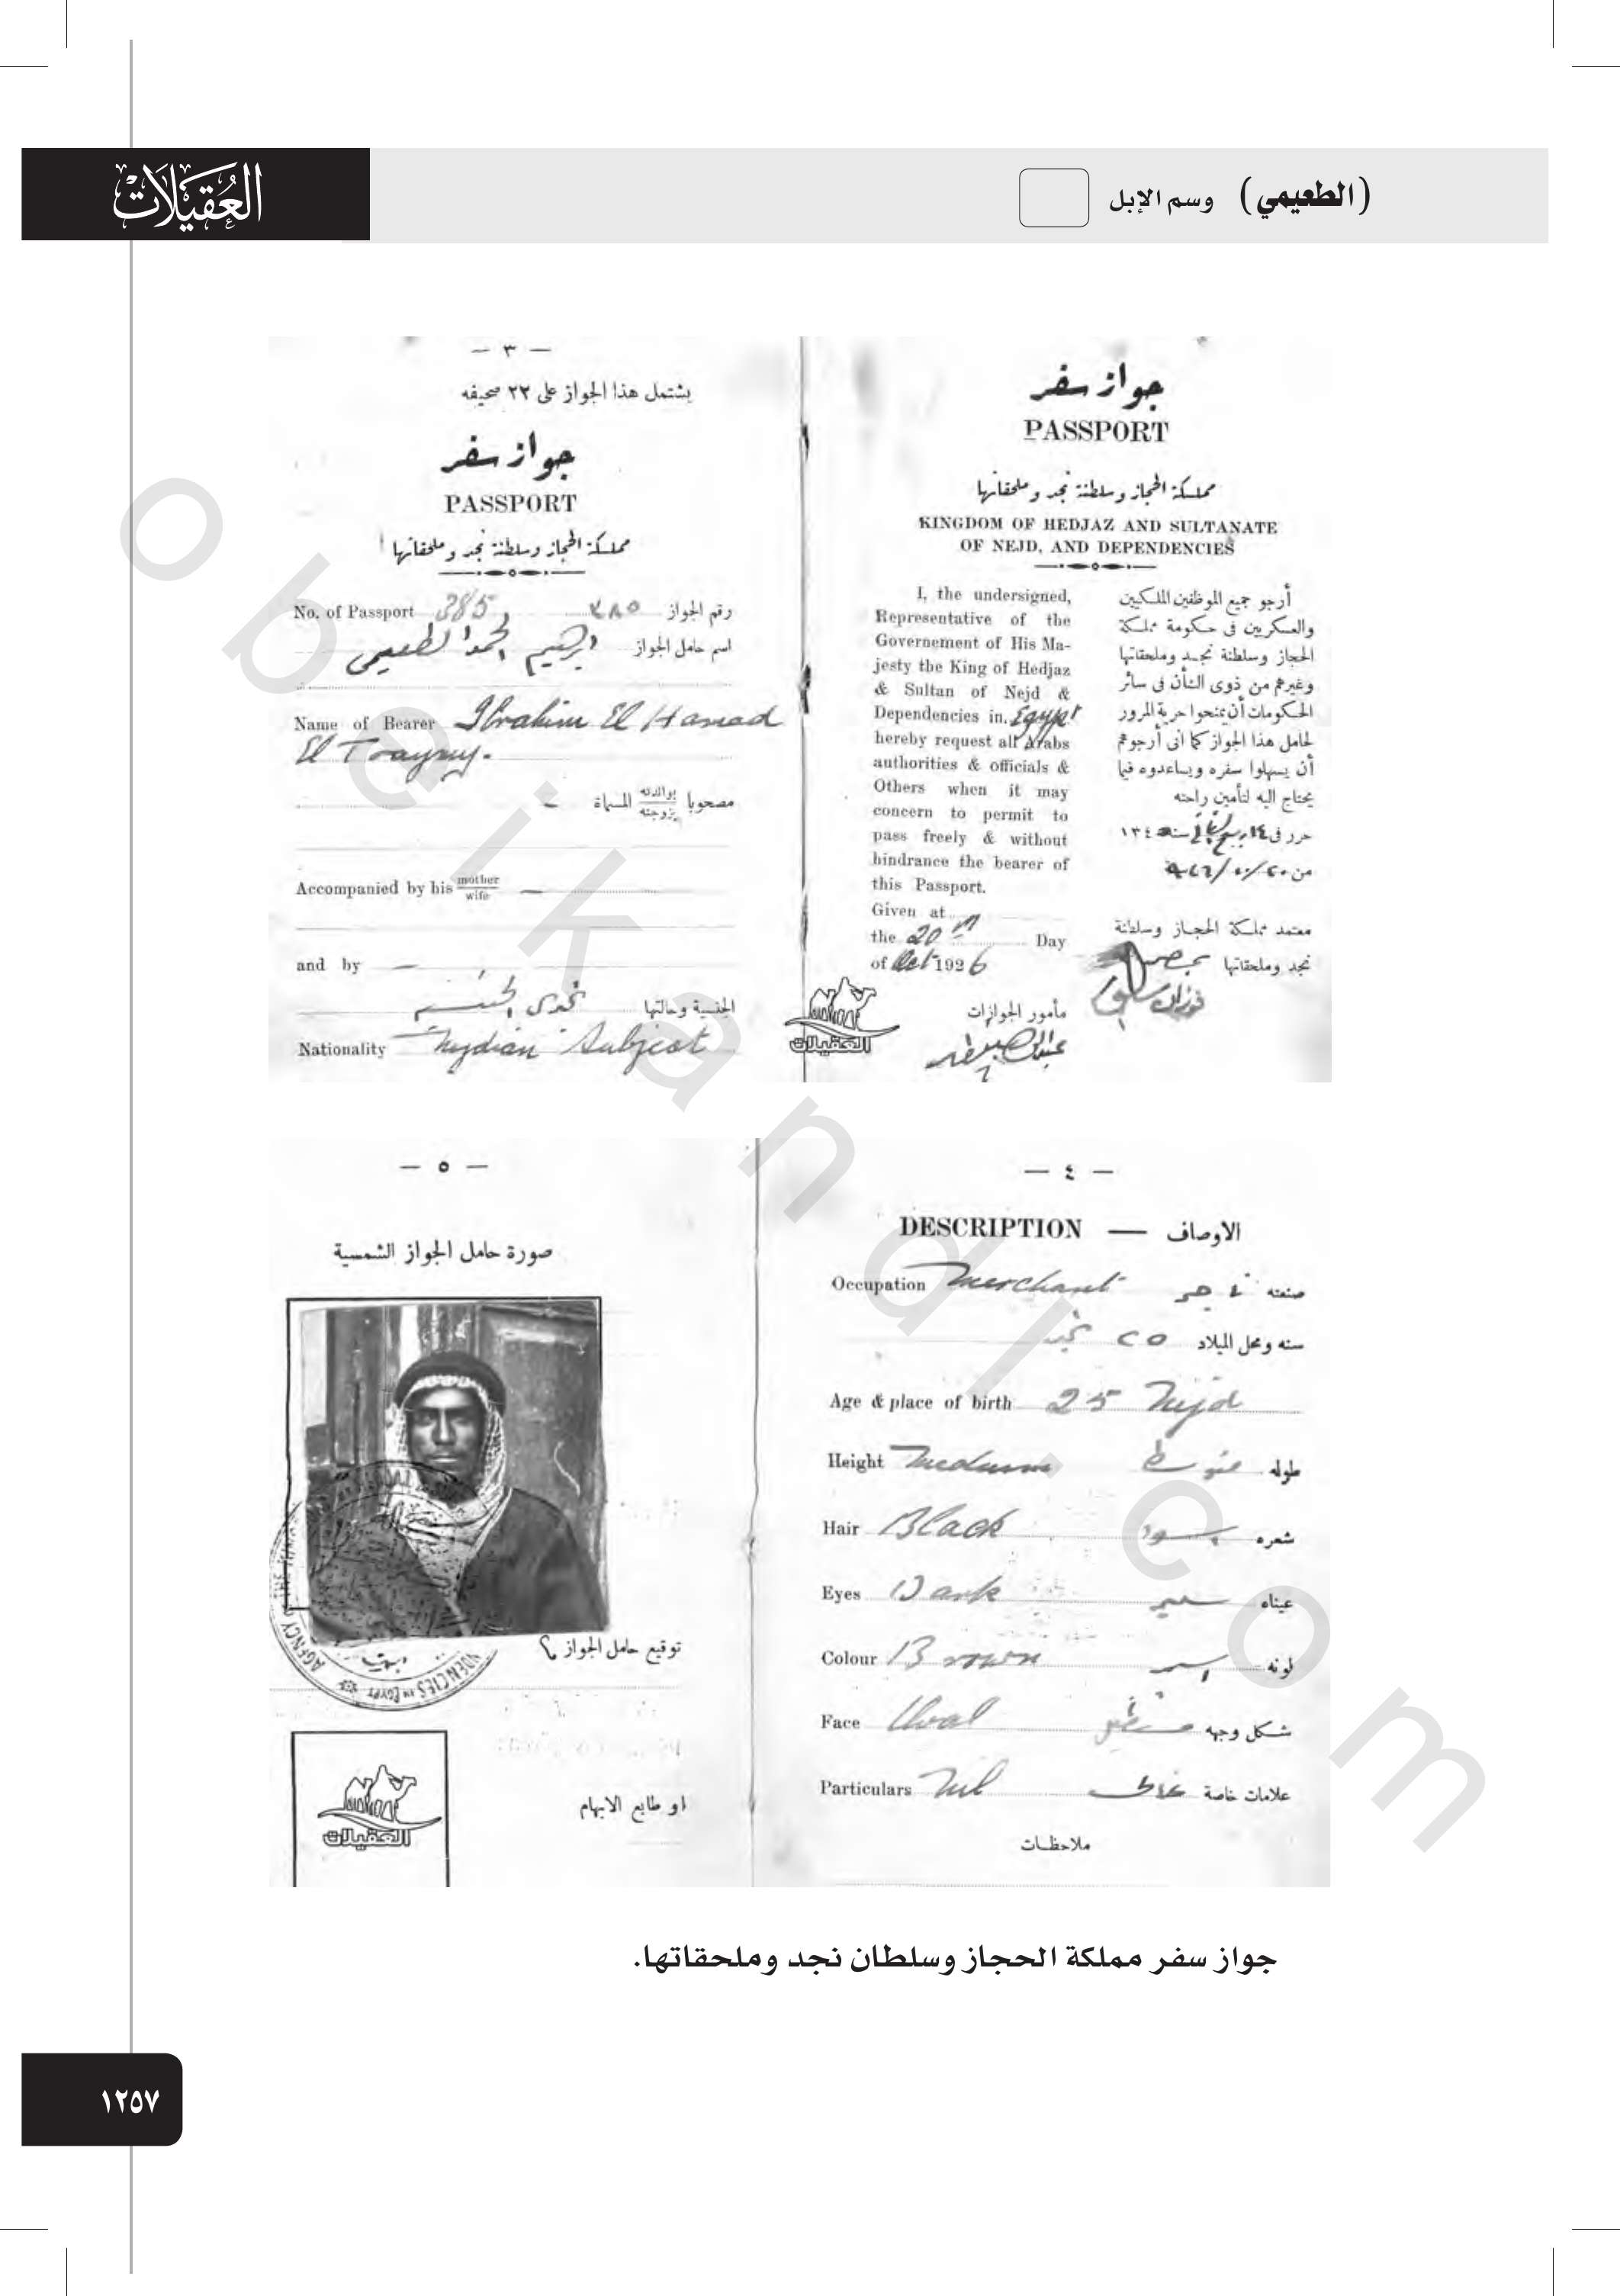 العقيلات
(الطعيمي) وسم الإبل
جواز سفر
PASSPORT
مملكة الحجاز وسلطنة نجد وملحقاتها
KINGDOM OF HEDJAZ AND SULTANATE
OF NEJD, AND DEPENDENCIES
أرجو جميع الموظفين الملكيين
والعسكريين فى حكومة مملكة
الحجاز وسلطنة نجد وملحقاتها
وغيرهم من ذوى الشأن فى سائر
الحكومات أن يمنحوا حرية المرور
لحامل هذا الجواز كما انى أرجوهم
أن يسهلوا سفره ويساعدوه فيما
يحتاج اليه لتأمين راحته
حرر فى ١٤ ربيع الثاني سنة ١٣٤٥
من
معتمد مملكة الحجاز وسلطنة
نجد وملحقاتها بمصر
فوزان السابق
مأمور الجوازات
I, the undersigned,
Representative of the
Governement of His Ma-
jesty the King of Hedjaz
& Sultan of Nejd &
Dependencies in. Egypt
hereby request all Arabs
authorities & officials &
Others when it may
concern to permit to
pass freely & without
hindrance the bearer of
this Passport.
Given at
the 20th Day
of Oct 1926
العقيلات
— ٣ —
يشتمل هذا الجواز على ٢٢ صحيفه
جواز سفر
PASSPORT
مملكة الحجاز وسلطنة نجد وملحقاتها
No. of Passport 385 ٣٨٥ رقم الجواز
اسم حامل الجواز ابراهيم الحمد الطعيمي
Name of Bearer Ibrahim El Hamad
El Toaymy.
مصحوبا بوالدته بزوجته المسماة —
Accompanied by his mother wife —
and by —
الجنسية وحالتها نجدى الجنسية
Nationality Nejdian Subject
— ٤ —
DESCRIPTION — الاوصاف
Occupation Merchant تاجر صنعته
سنه ومحل الميلاد ٢٥ نجد
Age & place of birth 25 Nejd
Height Medium متوسط طوله
Hair Black اسود شعره
Eyes Dark عيناه
Colour Brown اسمر لونه
Face Oval شكل وجهه
Particulars Nil علامات خاصة
ملاحظات
— ٥ —
صورة حامل الجواز الشمسية
AGENCY OF THE
DENCIES IN EGYPT
توقيع حامل الجواز
او طابع الابهام
العقيلات
جواز سفر مملكة الحجاز وسلطان نجد وملحقاتها.
١٢٥٧
obeikandl.com